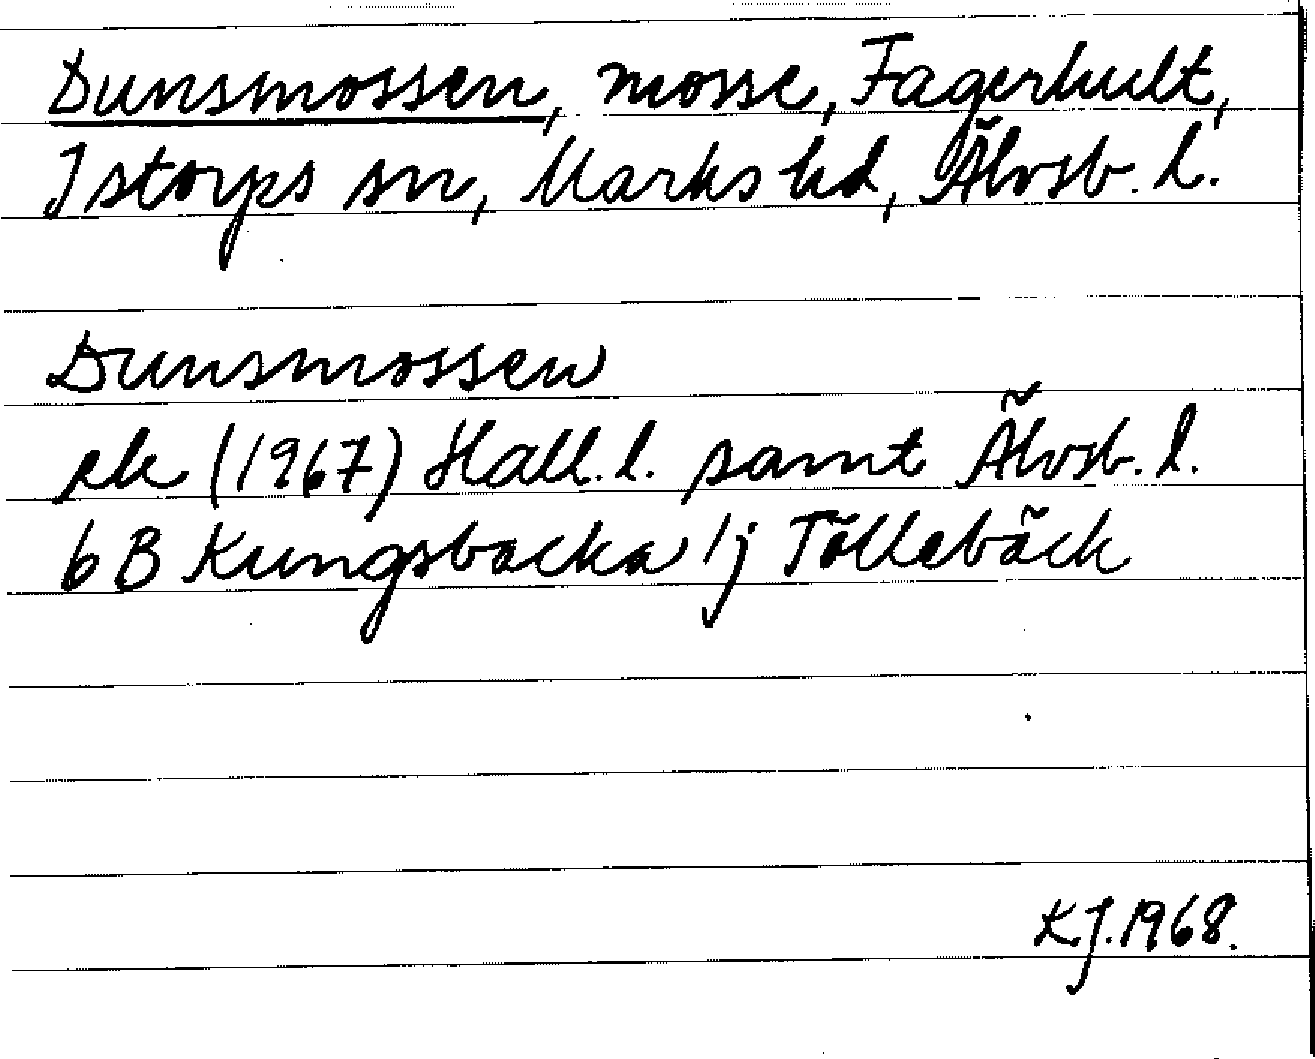 Dunsmossen, mosse, Fagerhult,
Istorps sn, Marks hd, Älvsb. l.
Dunsmossen
ek (1967) Hall. l. samt Älvsb. l.
6 B Kungsbacka 1j Töllebäck
KJ. 1968.